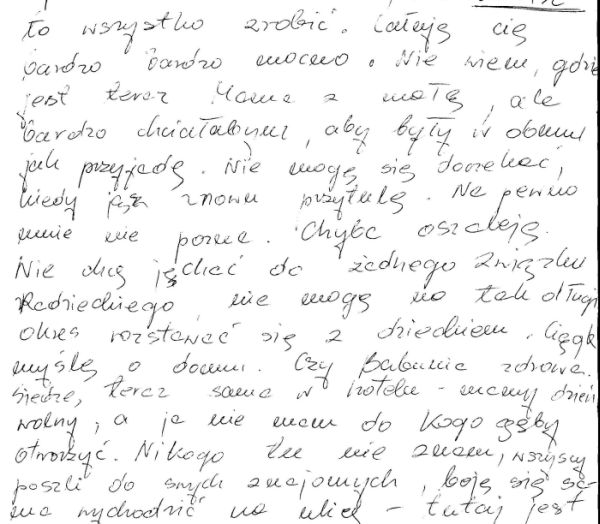 to wszystko zrobić. Całuję cię
bardzo bardzo mocno. Nie wiem, gdzie
jest teraz Mama z małą, ale
bardzo chciałabym, aby były w domu
jak przyjadę. Nie mogę się doczekać,
kiedy ją znowu przytulę. Na pewno
mnie nie pozna. Chyba oszaleję.
Nie chcę jechać do żadnego Związku
Radzieckiego, nie mogę na tak długi
okres rozstawać się z dzieckiem. Ciągle
myślę o domu. Czy Babunia zdrowa.
Siedzę, teraz sama w hotelu - mamy dzień
wolny, a ja nie mam do kogo gęby
otworzyć. Nikogo tu nie znam, wszyscy
poszli do swych znajomych, boję się sa-
ma wychodzić na ulicę - tutaj jest